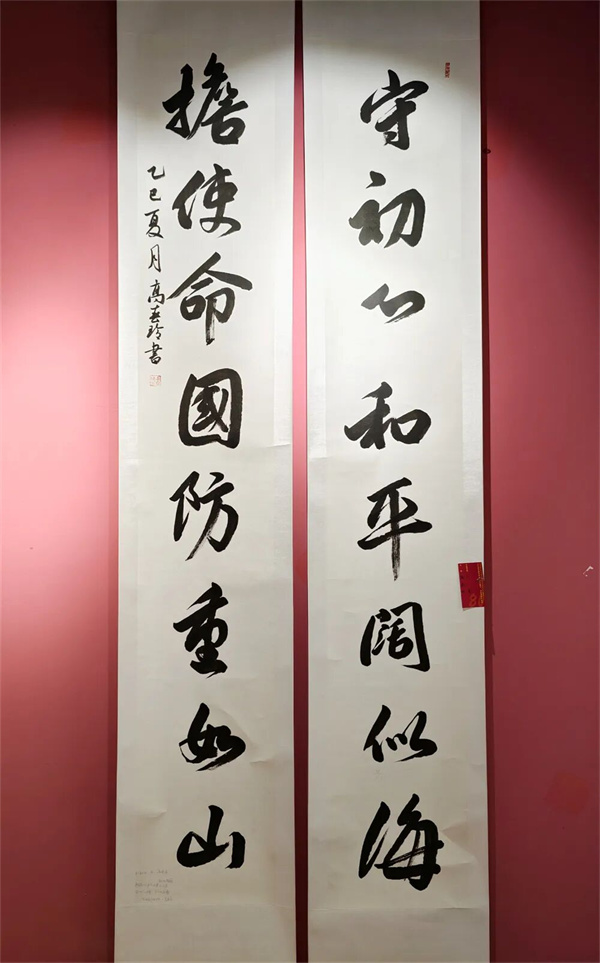 守初心和平阔似海
擔使命國防重如山
乙巳夏月高春玲書